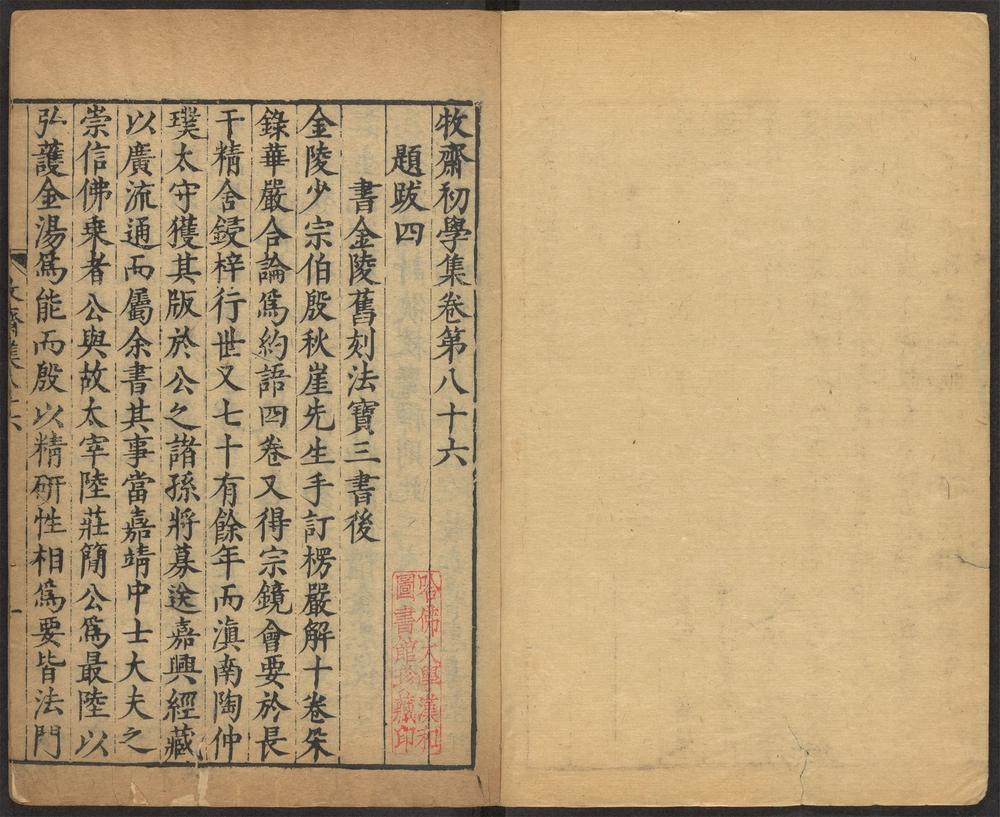 牧齋初學集卷第八十六
題跋四
書金陵舊刻法寶三書後
金陵少宗伯殷秋崖先生手訂楞嚴解十卷采
錄華嚴合論爲約語四卷又得宗鏡會要於長
干精舍鋟梓行世又七十有餘年而滇南陶仲
璞太守獲其版於公之諸孫將募送嘉興經藏
以廣流通而屬余書其事當嘉靖中士大夫之
崇信佛乗者公與故太宰陸莊簡公爲最陸以
弘護金湯爲能而殷以精研性相爲要皆法門
哈佛大學漢和
圖書館珍藏印